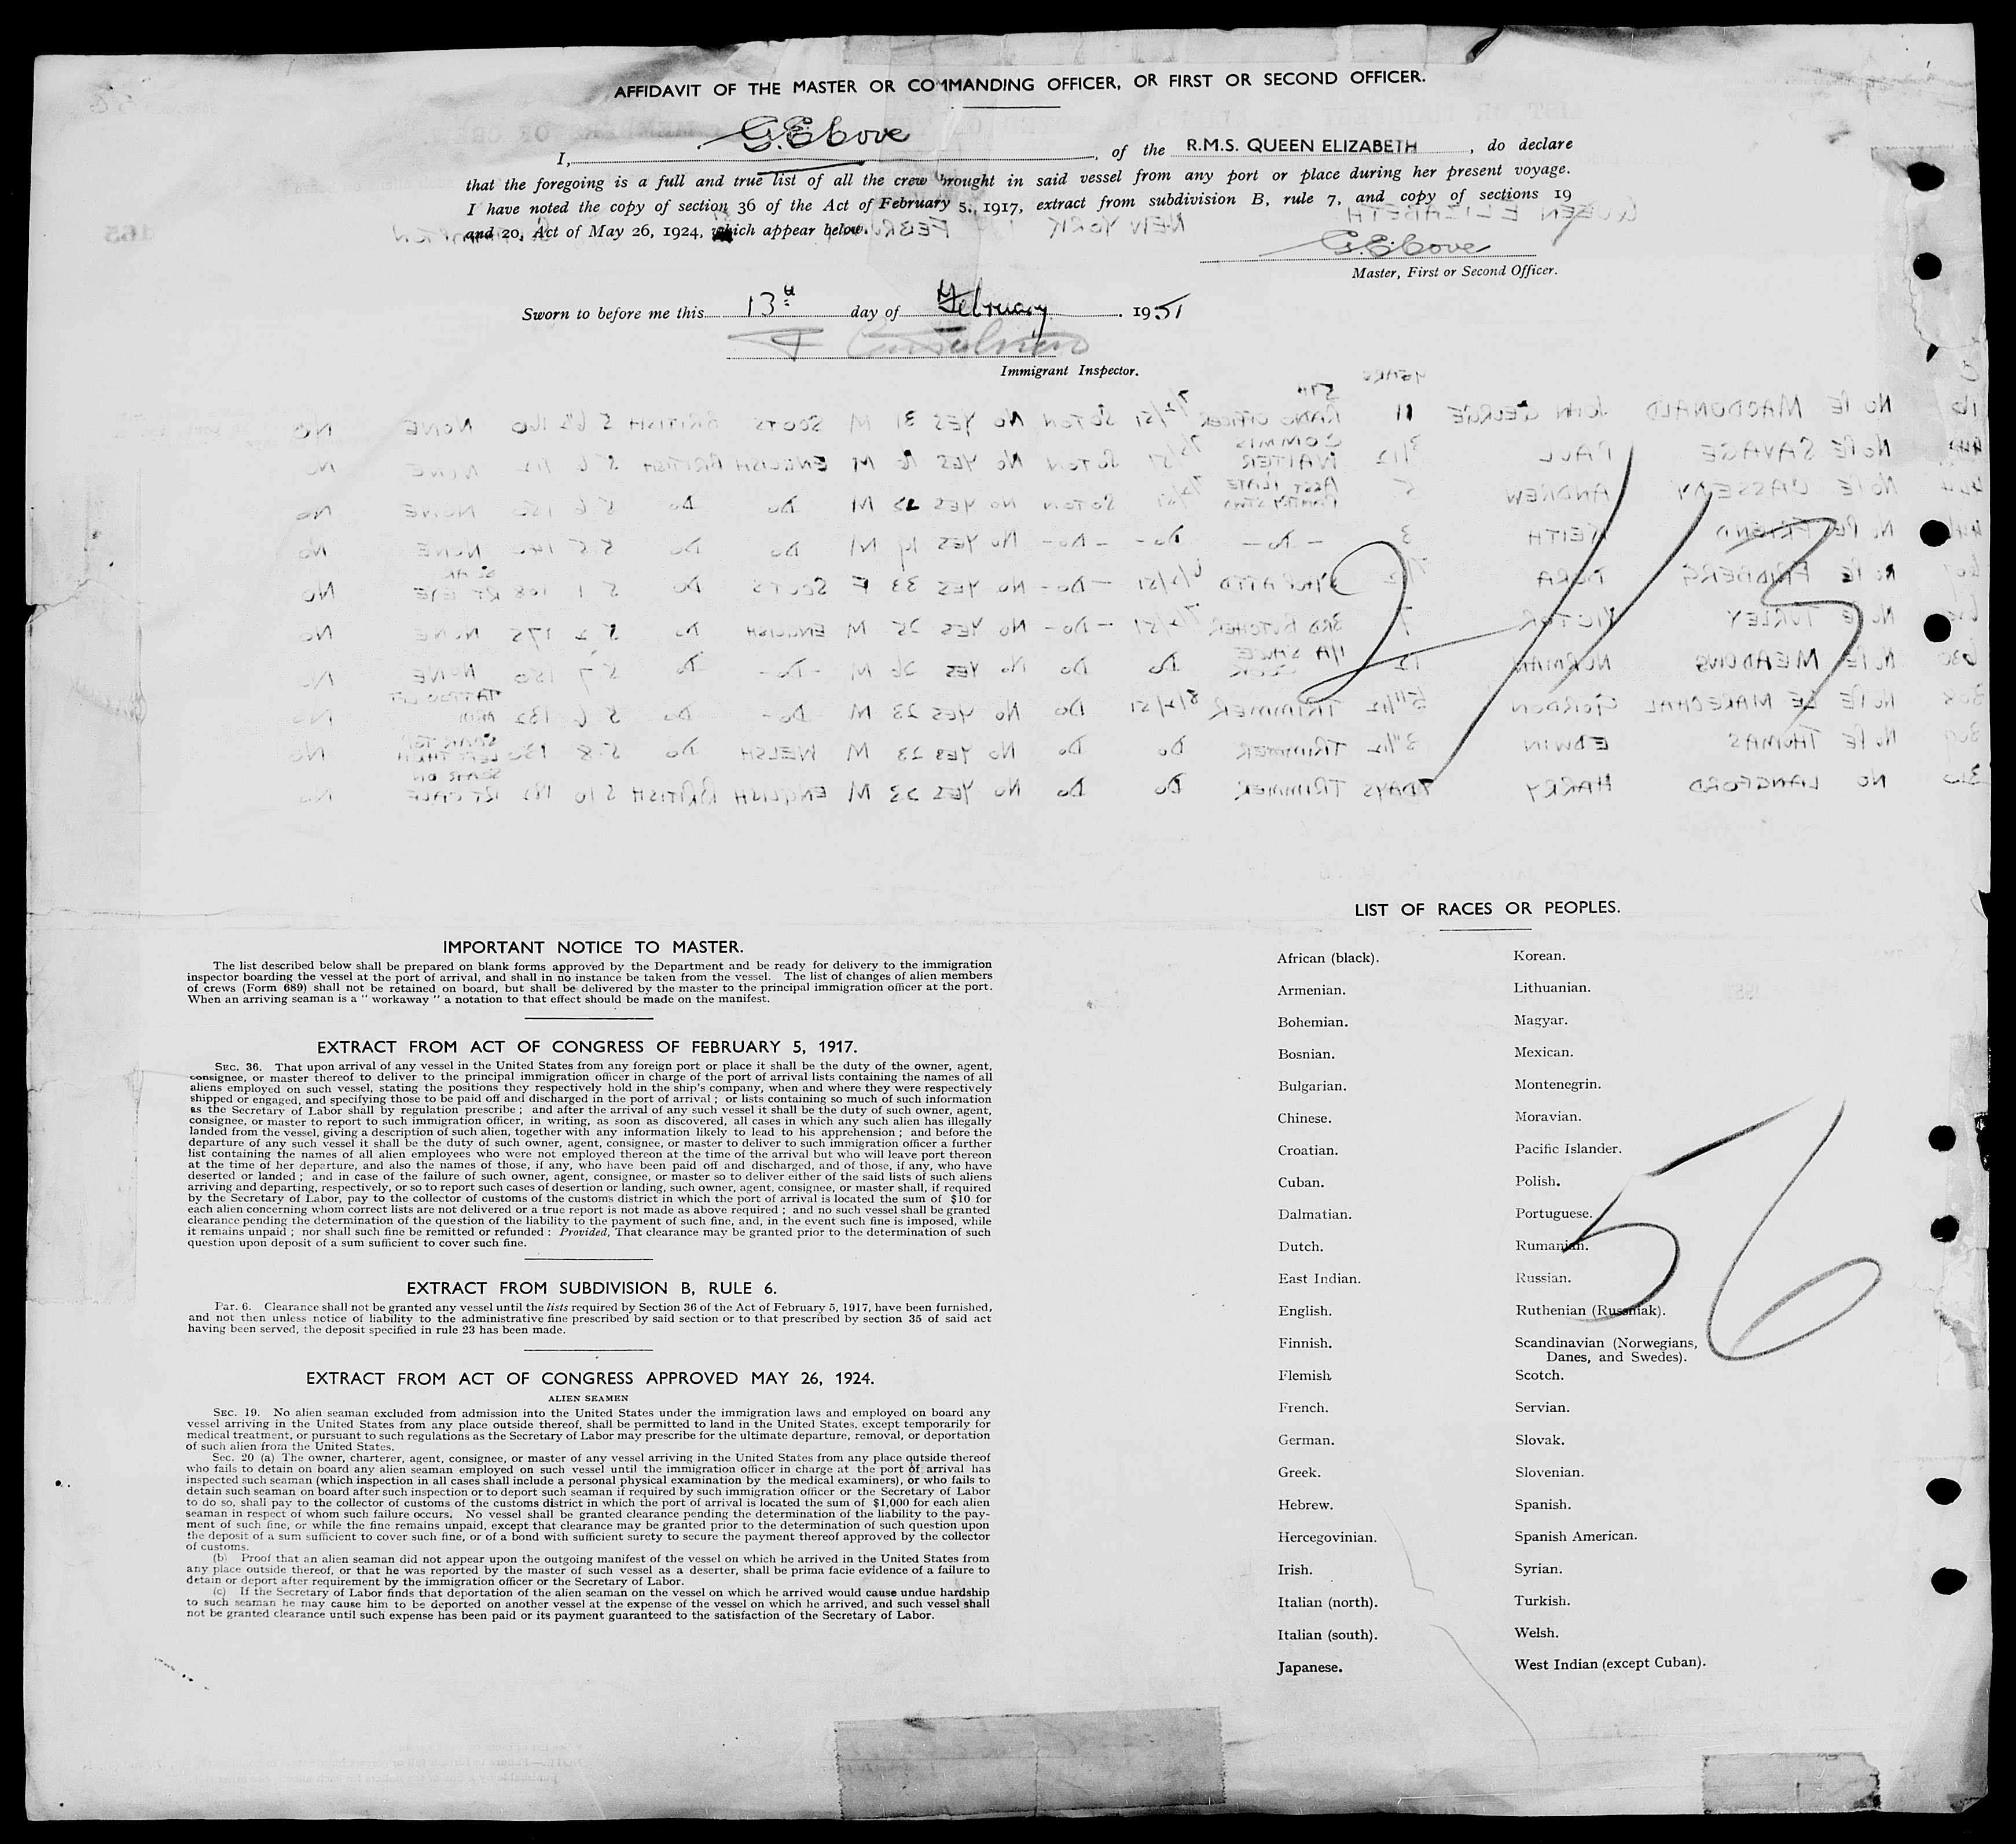 AFFIDAVIT OF THE MASTER OR COMMANDING OFFICER, OR FIRST OR SECOND OFFICER.
I, G.E. Cove, of the R.M.S. QUEEN ELIZABETH, do declare
that the foregoing is a full and true list of all the crew brought in said vessel from any port or place during her present voyage.
I have noted the copy of section 36 of the Act of February 5, 1917, extract from subdivision B, rule 7, and copy of sections 19
and 20, Act of May 26, 1924, which appear below.
G.E. Cove
Master, First or Second Officer.
Sworn to before me this 13th day of February 1951
Immigrant Inspector.
2/13
IMPORTANT NOTICE TO MASTER.
The list described below shall be prepared on blank forms approved by the Department and be ready for delivery to the immigration
inspector boarding the vessel at the port of arrival, and shall in no instance be taken from the vessel. The list of changes of alien members
of crews (Form 689) shall not be retained on board, but shall be delivered by the master to the principal immigration officer at the port.
When an arriving seaman is a " workaway " a notation to that effect should be made on the manifest.
EXTRACT FROM ACT OF CONGRESS OF FEBRUARY 5, 1917.
SEC. 36. That upon arrival of any vessel in the United States from any foreign port or place it shall be the duty of the owner, agent,
consignee, or master thereof to deliver to the principal immigration officer in charge of the port of arrival lists containing the names of all
aliens employed on such vessel, stating the positions they respectively hold in the ship's company, when and where they were respectively
shipped or engaged, and specifying those to be paid off and discharged in the port of arrival ; or lists containing so much of such information
as the Secretary of Labor shall by regulation prescribe ; and after the arrival of any such vessel it shall be the duty of such owner, agent,
consignee, or master to report to such immigration officer, in writing, as soon as discovered, all cases in which any such alien has illegally
landed from the vessel, giving a description of such alien, together with any information likely to lead to his apprehension ; and before the
departure of any such vessel it shall be the duty of such owner, agent, consignee, or master to deliver to such immigration officer a further
list containing the names of all alien employees who were not employed thereon at the time of the arrival but who will leave port thereon
at the time of her departure, and also the names of those, if any, who have been paid off and discharged, and of those, if any, who have
deserted or landed ; and in case of the failure of such owner, agent, consignee, or master so to deliver either of the said lists of such aliens
arriving and departing, respectively, or so to report such cases of desertion or landing, such owner, agent, consignee, or master shall, if required
by the Secretary of Labor, pay to the collector of customs of the customs district in which the port of arrival is located the sum of $10 for
each alien concerning whom correct lists are not delivered or a true report is not made as above required ; and no such vessel shall be granted
clearance pending the determination of the question of the liability to the payment of such fine, and, in the event such fine is imposed, while
it remains unpaid ; nor shall such fine be remitted or refunded : Provided, That clearance may be granted prior to the determination of such
question upon deposit of a sum sufficient to cover such fine.
EXTRACT FROM SUBDIVISION B, RULE 6.
Par. 6. Clearance shall not be granted any vessel until the lists required by Section 36 of the Act of February 5, 1917, have been furnished,
and not then unless notice of liability to the administrative fine prescribed by said section or to that prescribed by section 35 of said act
having been served, the deposit specified in rule 23 has been made.
EXTRACT FROM ACT OF CONGRESS APPROVED MAY 26, 1924.
ALIEN SEAMEN
SEC. 19. No alien seaman excluded from admission into the United States under the immigration laws and employed on board any
vessel arriving in the United States from any place outside thereof, shall be permitted to land in the United States, except temporarily for
medical treatment, or pursuant to such regulations as the Secretary of Labor may prescribe for the ultimate departure, removal, or deportation
of such alien from the United States.
Sec. 20 (a) The owner, charterer, agent, consignee, or master of any vessel arriving in the United States from any place outside thereof
who fails to detain on board any alien seaman employed on such vessel until the immigration officer in charge at the port of arrival has
inspected such seaman (which inspection in all cases shall include a personal physical examination by the medical examiners), or who fails to
detain such seaman on board after such inspection or to deport such seaman if required by such immigration officer or the Secretary of Labor
to do so, shall pay to the collector of customs of the customs district in which the port of arrival is located the sum of $1,000 for each alien
seaman in respect of whom such failure occurs. No vessel shall be granted clearance pending the determination of the liability to the pay-
ment of such fine, or while the fine remains unpaid, except that clearance may be granted prior to the determination of such question upon
the deposit of a sum sufficient to cover such fine, or of a bond with sufficient surety to secure the payment thereof approved by the collector
of customs.
(b) Proof that an alien seaman did not appear upon the outgoing manifest of the vessel on which he arrived in the United States from
any place outside thereof, or that he was reported by the master of such vessel as a deserter, shall be prima facie evidence of a failure to
detain or deport after requirement by the immigration officer or the Secretary of Labor.
(c) If the Secretary of Labor finds that deportation of the alien seaman on the vessel on which he arrived would cause undue hardship
to such seaman he may cause him to be deported on another vessel at the expense of the vessel on which he arrived, and such vessel shall
not be granted clearance until such expense has been paid or its payment guaranteed to the satisfaction of the Secretary of Labor.
LIST OF RACES OR PEOPLES.
African (black).
Armenian.
Bohemian.
Bosnian.
Bulgarian.
Chinese.
Croatian.
Cuban.
Dalmatian.
Dutch.
East Indian.
English.
Finnish.
Flemish
French.
German.
Greek.
Hebrew.
Hercegovinian.
Irish.
Italian (north).
Italian (south).
Japanese.
Korean.
Lithuanian.
Magyar.
Mexican.
Montenegrin.
Moravian.
Pacific Islander.
Polish.
Portuguese.
Rumanian.
Russian.
Ruthenian (Russniak).
Scandinavian (Norwegians,
Danes, and Swedes).
Scotch.
Servian.
Slovak.
Slovenian.
Spanish.
Spanish American.
Syrian.
Turkish.
Welsh.
West Indian (except Cuban).
56